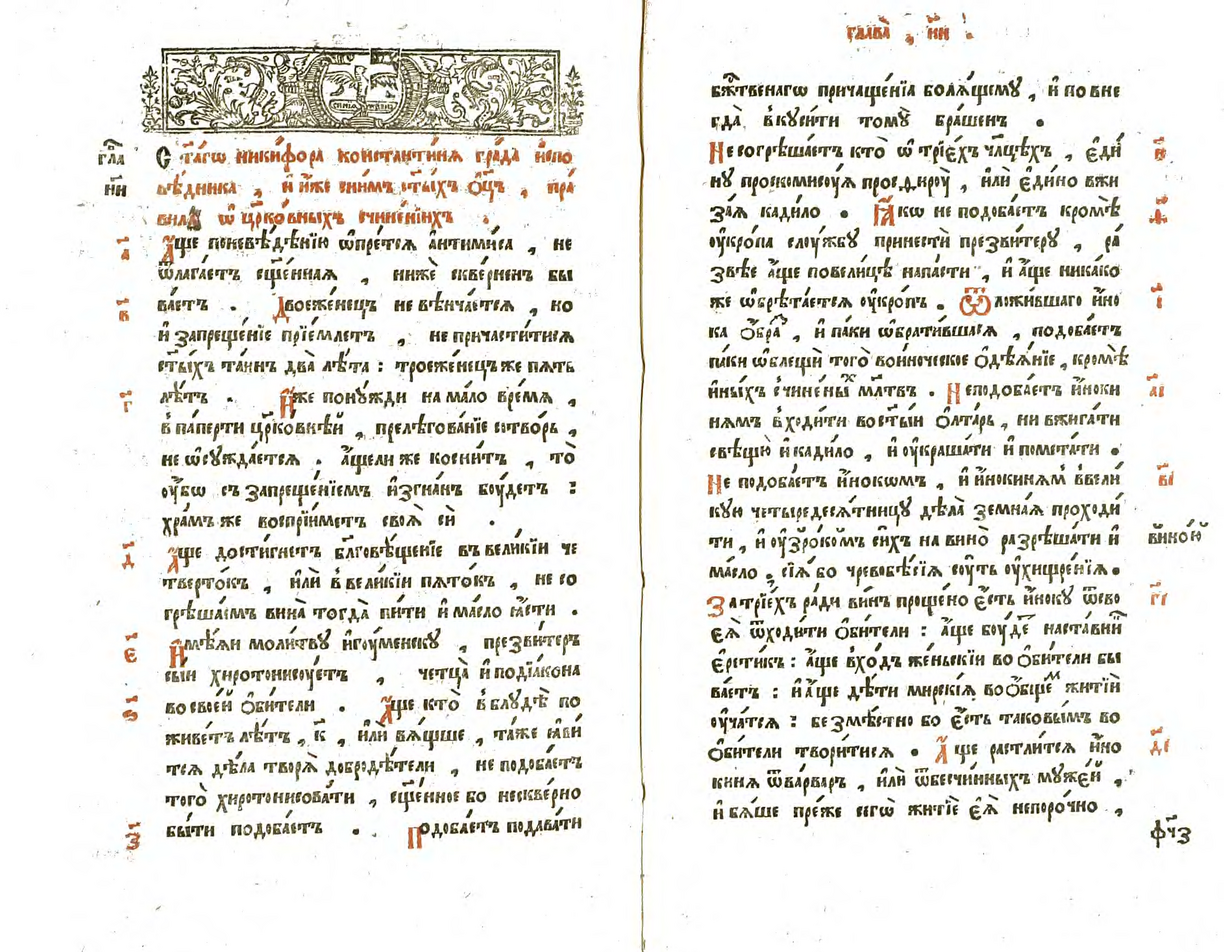 гла́ н҃и
Ст҃а́гѡ ники́фора константи́нѧ гра́да испо
вѣ́дника , и҆ и҆́же сни́мъ ст҃ы́хъ ѻ҆ц҃ъ , пра́
вила ѡ҆ цр҃ко́вныхъ счине́нїихъ
а҃
А҆́ще поневѣ́дѣнїю ѡ҆пре́тсѧ а҆нтими́са , не
ѿлага́етъ сщ҃е́ннаѧ , нижѐ скве́рненъ бы
ва́етъ . Двоеже́нецъ не вѣнча́етсѧ , но
в҃
и҆ запреще́нїе прїе́млетъ , не причасти́тисѧ
ст҃ы́хъ та́инъ два̀ лѣ́та : троеже́нецъ же пѧ́ть
лѣ́тъ . И҆́же пону́жди на мало вре́мѧ ,
г҃
в па́перти цр҃ко́внѣй , прелѣгова́нїе сотво́рь ,
не ѡ҆сужда́етсѧ . а҆́щели же косни́тъ , то̀
оу҆́бѡ съ запреще́нїемъ и҆згна́нъ боу́детъ :
хра́мъ же воспрїи́метъ своѧ̀ си̑ .
д҃
А҆́ще дости́гнетъ бл҃гове́щенїе въ вели́кїи че
тверто́къ , и҆лѝ в вели́кїи пѧто́къ , не со
грѣша́емъ вина̀ тогда̀ пи́ти и҆ ма́сло ꙗ҆́сти .
е҃
И҆мѣ́ѧи моли́тву и҆гоу́менскꙋ , презви́теръ
сыи хиротонисоу́етъ , четца̀ и҆ подїа́кона
во свое́й ѻ҆би́тели . А҆́ще кто̀ в блу́дѣ по
ѕ҃
живе́тъ лѣ́тъ , к҃ , и҆лѝ вѧ́щше , та́же ꙗ҆ви́
тсѧ дѣ́ла творѧ̀ добродѣ́тели , не подоба́етъ
того̀ хиротонисова́ти , сщ҃е́нное бо нескве́рно
бы́ти подоба́етъ . Подоба́етъ подава́ти
з҃
глава̀ , н҃и .
бж҃е́ственагѡ причаще́нїѧ болѧ́щему , и҆ по вне
гда̀ вкуси́ти тому̀ бра́шенъ .
Не согрѣша́етъ кто̀ ѡ҆ трїе́хъ ча́щѣхъ , е҆ди́
и҃
ну проскомису́ѧ просфироу̀ , и҆лѝ е҆ди́но вжи
за́ѧ кади́ло . Ꙗ҆́кѡ не подоба́етъ кромѣ̀
ѳ҃
оу҆кро́па слоу́жбу принестѝ презви́теру , ра́
звѣе а҆́ще повели́цѣ напа́сти , и҆ а҆́ще ника́ко
же ѡ҆брѣта́етсѧ оу҆кро́пъ . Ѿложи́вшаго и҆́но
і҃
ка ѻ҆́бра , и҆ па́ки ѡ҆брати́вшасѧ , подоба́етъ
па́ки ѡ҆блещѝ того̀ во и҆́ноческое ѻ҆дѣѧ́нїе , кромѣ̀
и҆ны́хъ счине́ныхъ мл҃твъ . Не подоба́етъ и҆́ноки
а҃і
нѧмъ входи́ти во ст҃ы́й ѻ҆лта́рь , ни вжига́ти
свѣщю̀ и҆ кади́ло , и҆ оу҆краша́ти и҆ помета́ти .
Не подоба́етъ и҆́нокѡмъ , и҆ и҆́нокинѧмъ в вели́
в҃і
кую четыредесѧ́тницу дѣ́ла земна́ѧ проходи́
ти , и҆ оу҆зро́комъ си́хъ на вино̀ разрѣша́ти и҆
виною
ма́сло , сїѧ̑ бо чревобѣ́сїѧ соу́ть оу҆хищре́нїѧ .
За трїе́хъ ра́ди ви́нъ проще́но є҆́сть и҆́ноку ѿ сво
г҃і
еѧ̀ ѿходи́ти ѻ҆би́тели : а҆́ще боу́де наста́вни
є҆рети́къ : а҆́ще в хо́дъ же́ньскїи во ѻ҆би́тели бы
ва́етъ : и҆ а҆́ще дѣ́ти мирскі́ѧ во ѻ҆́бщемъ житїѝ
оу҆ча́тсѧ : безмѣ́стно бо є҆́сть таковы́мъ во
ѻ҆би́тели твори́тисѧ . А҆́ще растли́тсѧ и҆́но
д҃і
кинѧ ѿ ва́рваръ , и҆лѝ ѿ бесчи́нныхъ муже́й ,
и҆ бѧ́ше пре́же сегѡ̀ житїѐ є҆ѧ̀ непоро́чно ,
фч҃з